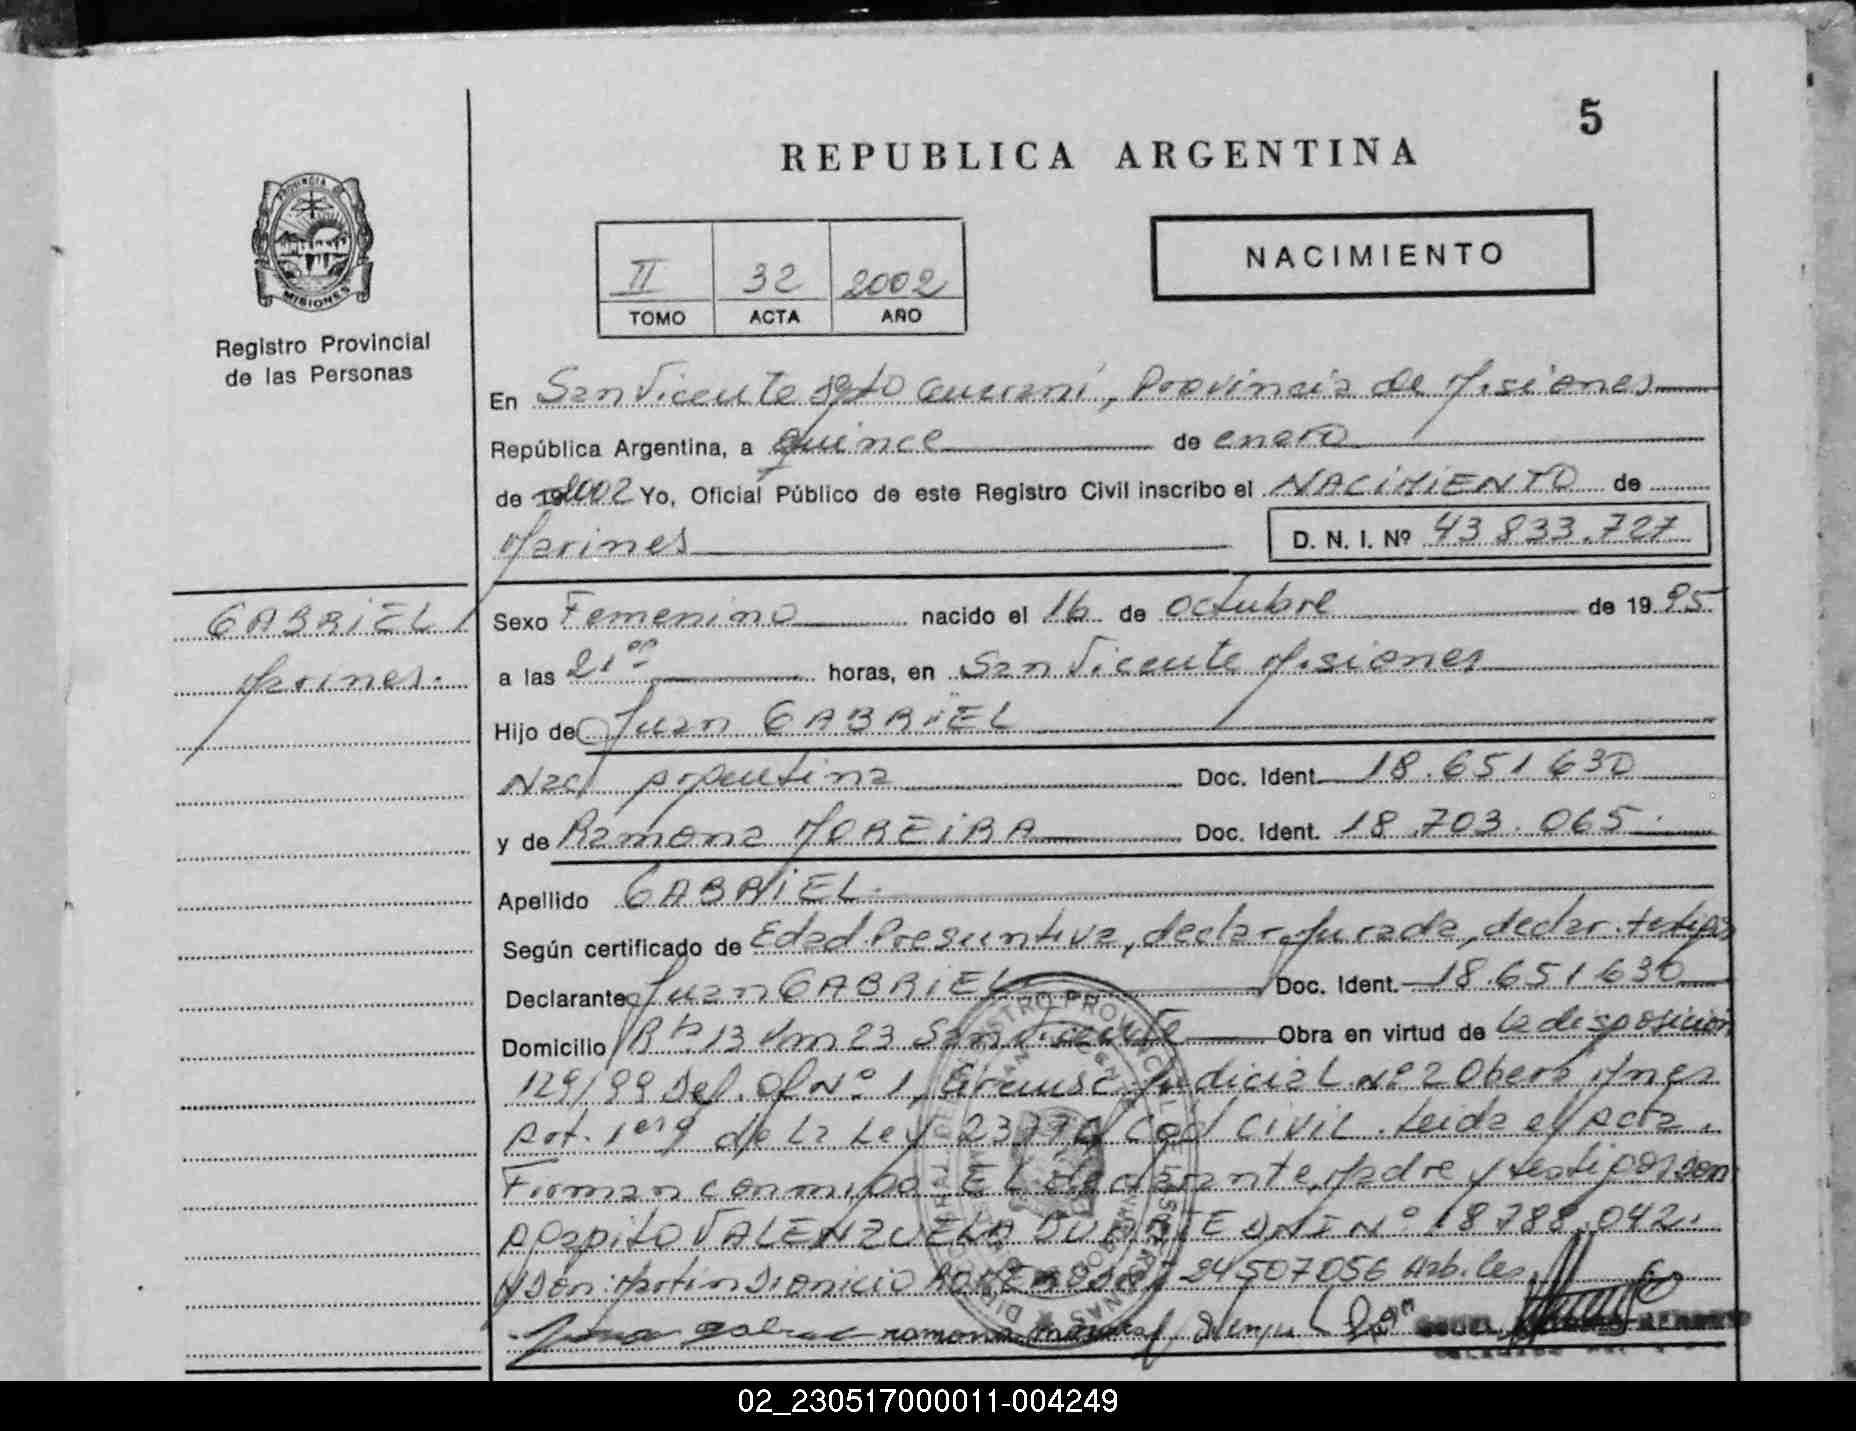 5
REPUBLICA ARGENTINA
PROVINCIA DE
MISIONES
Registro Provincial
de las Personas
II 32 2002
TOMO ACTA AÑO
NACIMIENTO
En San Vicente Dpto Guarani, Provincia de Misiones
República Argentina, a quince de enero
de 2002 Yo, Oficial Público de este Registro Civil inscribo el NACIMIENTO de
Marines D. N. I. Nº 43 833.727
GABRIEL
Marines.
Sexo Femenino nacido el 16 de octubre de 19 95
a las 21 horas, en San Vicente Misiones
Hijo de Juan GABRIEL
Nac Argentina Doc. Ident. 18.651 630
y de Ramona MOREIRA Doc. Ident. 18.703.065.
Apellido GABRIEL.
Según certificado de Edad Presuntiva, declar. Jurada, declar. testigos
Declarante Juan GABRIEL Doc. Ident. 18.651 630
Domicilio Rta 13 km 23 San Vicente Obra en virtud de la disposición
129/99 Def. Of Nº 1, Circunsc. Judicial Nº 2 Oberá Mnes
Art. 1 de la Ley Cod CIVIL. Leida el Acta.
Firman conmigo EL declarante, Madre y testigos Don
Agapito VALENZUELA DUARTE DNI Nº 18 788.042.
y Don: Martin Dionicio 24507056
ramona
02_230517000011-004249